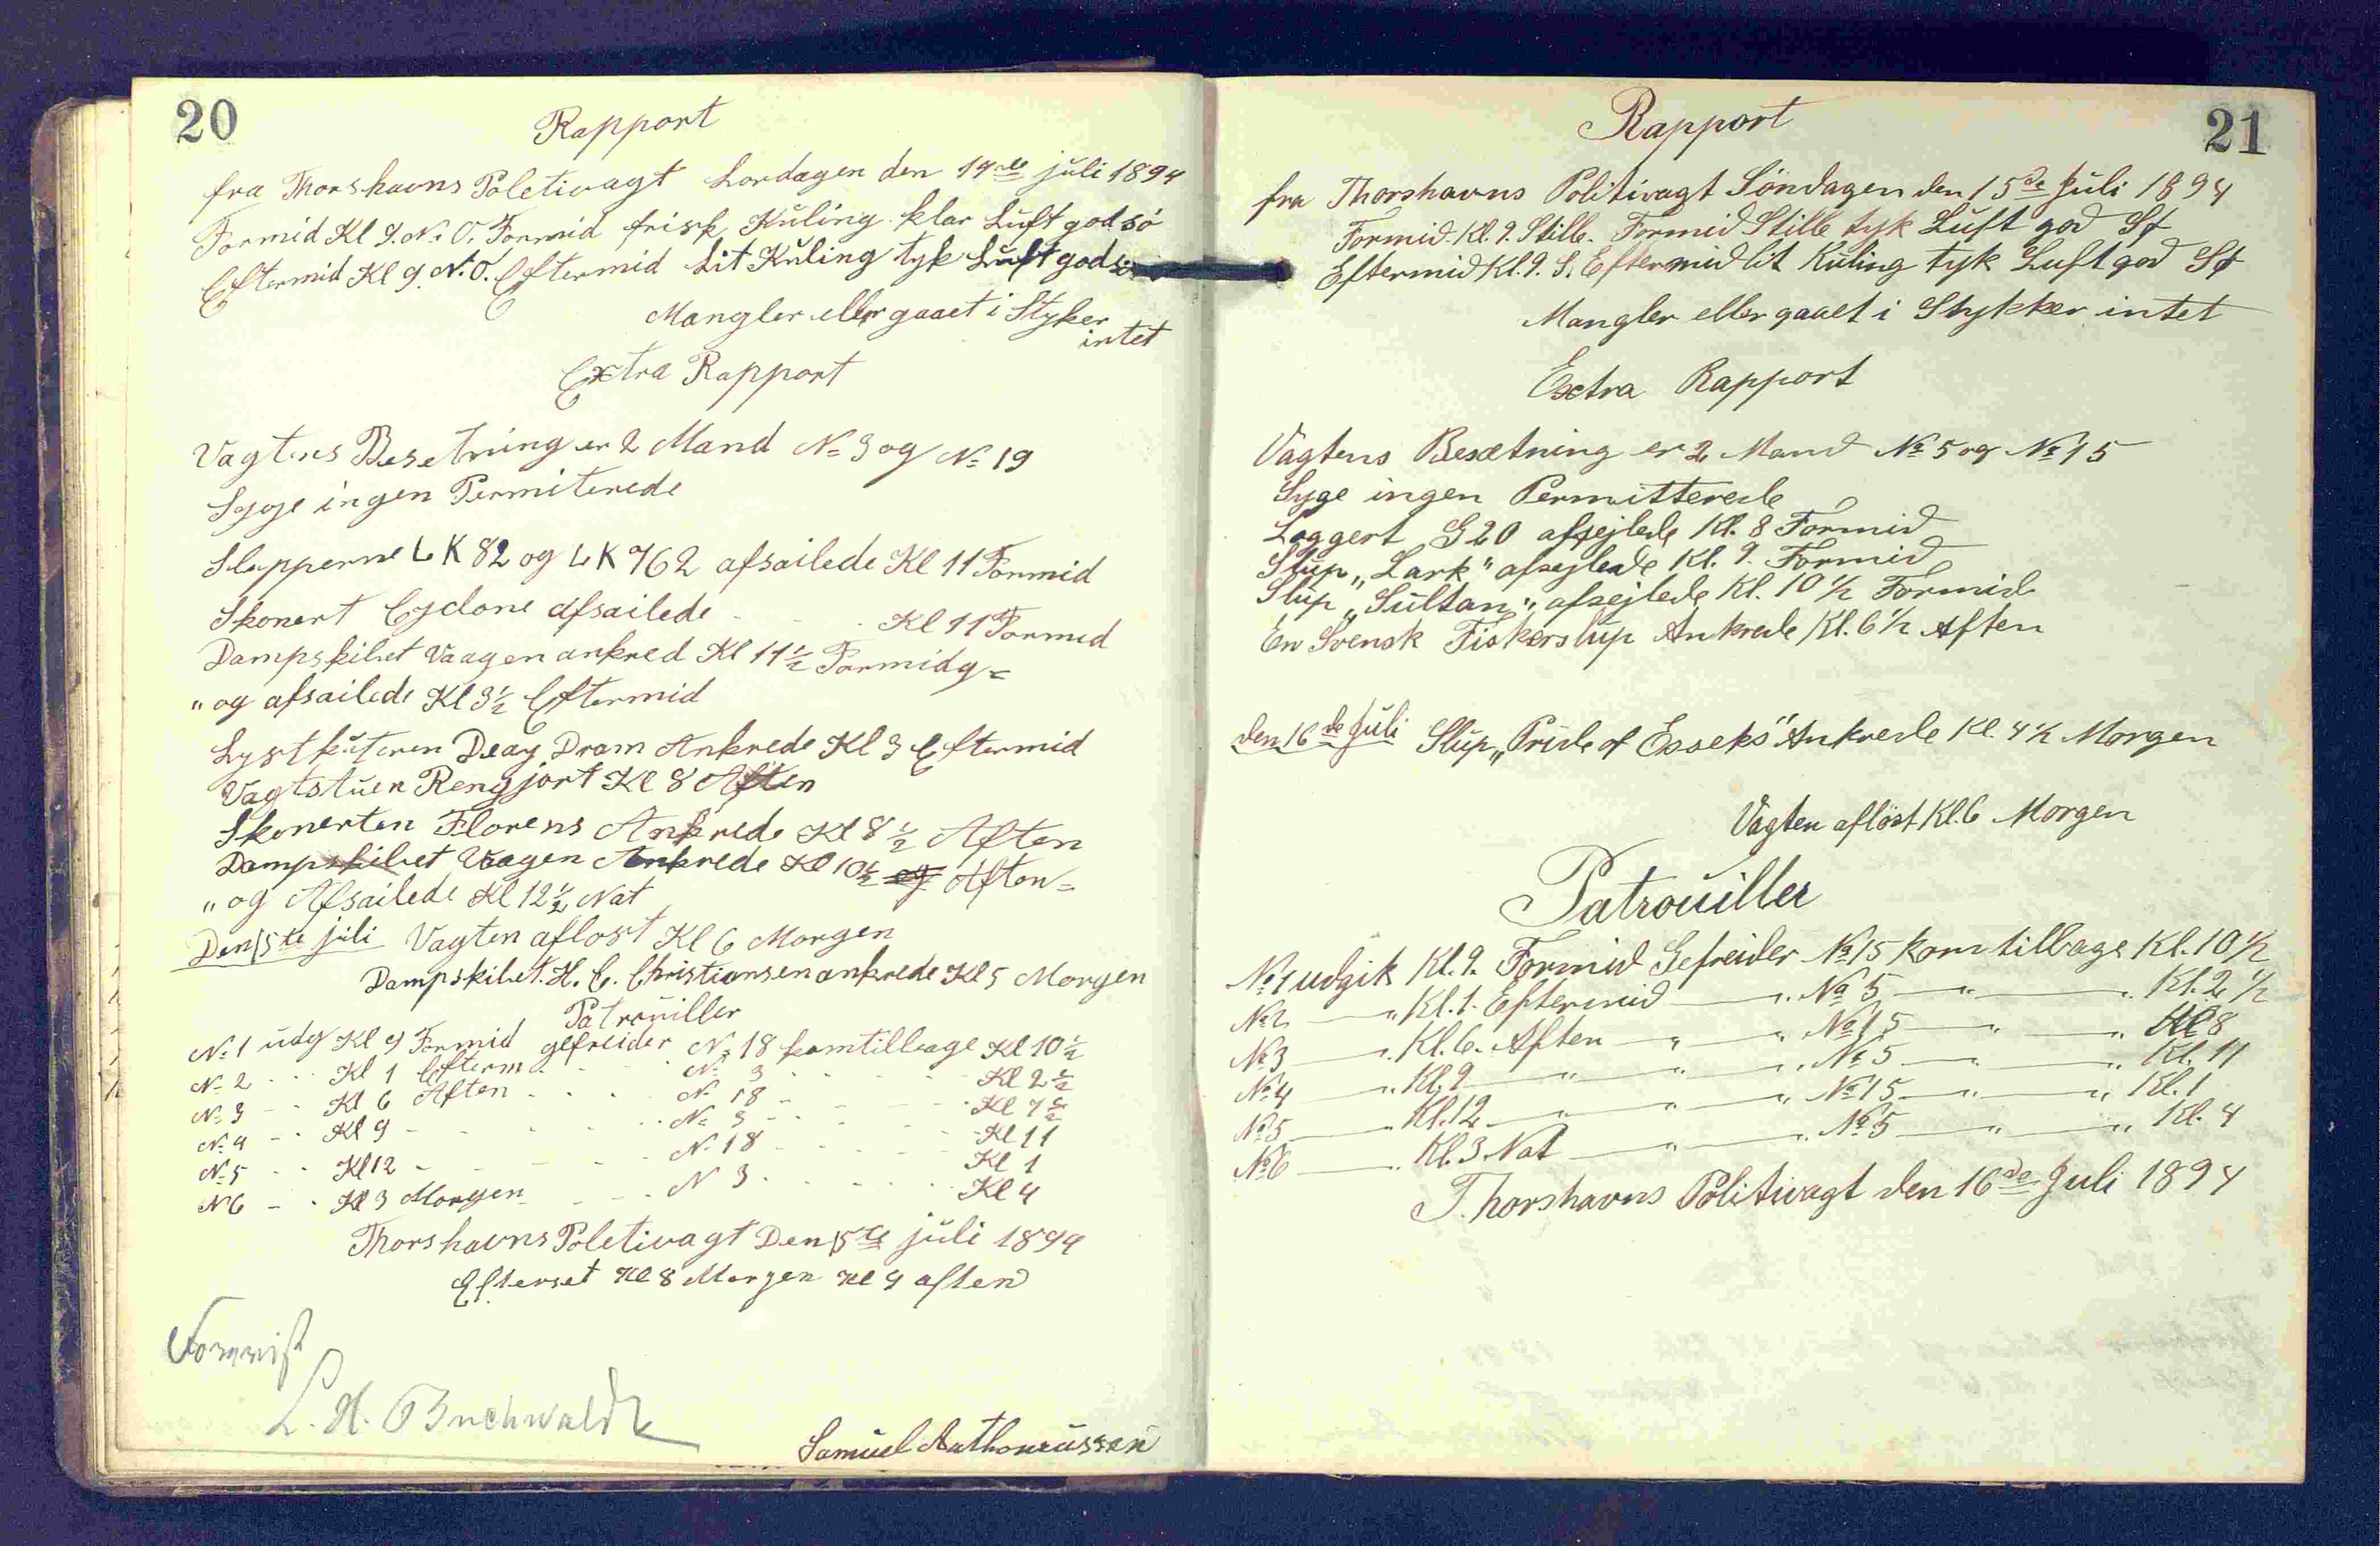 20
Rapport
fra Thorshavns Poletivagt Lordagen den 14de juli 1894
Formid Kl 9. N. O. Formid frisk Kuling klar Luft god sö
Eftermid Kl 9. N. O. Eftermid Lit Kuling tyk Luft god
Mangler eller gaaet i Styker
intet
Extra Rapport
Vagtens Besetning er 2 Mand No 3 og No 19
Syge ingen Permiterede
Slupperne LK 82 og LK 762 afsailede Kl 11 Formid
Skonert Cyclone afsailede Kl 11 Formid
Dampskibet Vaagen ankred Kl 11 1/2 Formidg =
" og afsailede Kl 3 1/2 Eftermid
Lystkuteren Deay Dram Ankrede Kl 3 Eftermid
Vagtstuen Rengjort Kl 8 Aften
Skonerten Florens Ankrede Kl 8 1/2 Aften
Dampskibet Vaagen Ankrede Kl 10 1/2 og Aften =
" og Afsailede Kl 12 1/2 Nat
Den 15te juli Vagten aflost Kl 6 Morgen
Dampskibet. H. C. Christiansen ankrede Kl 5 Morgen
Patrouiller
No 1 udg Kl 9 Formid gefreider No 18 kom tilbage Kl 10 1/2
No 2 - - Kl 1 Efterm - - No 3 - - Kl 2 1/2
No 3 - - Kl 6 Aften - - No 18 - - Kl 7 1/2
No 4 - - Kl 9 - - No 3 - - Kl 11
No 5 - - Kl 12 - - No 18 - - Kl 1
N 6 - - Kl 3 Morgen - - N 3 - - Kl 4
Thorshavns Poletivagt Den 15te juli 1894
Efterset Kl 8 Morgen Kl 9 aften
L. H. Buchwaldt
Samuel Anthoniussen
21
Rapport
fra Thorshavns Politivagt Söndagen den 15de Juli 1894
Formid. Kl. 9. Stille. Formid Stille tyk Luft god Sø
Eftermid Kl. 9. S. Eftermid lit Kuling tyk Luft god Sø
Mangler eller gaaet i Stykker intet
Extra Rapport
Vagtens Besætning er 2 Mand No 5 og No 15
Syge ingen Permitterede
Loggert G 20 afsejlede Kl. 8 Formid
Slup „Lark" afsejlede Kl. 9. Formid
Slup „Sultan", afsejlede Kl. 10 1/2 Formid
En Svensk Fiskerslup Ankrede Kl. 6 1/2 Aften
den 16de Juli Slup „Pride of Esseks" Ankrede Kl. 4 1/2 Morgen
Vagten aflöst Kl. 6 Morgen
Patrouiller
No 1 udgik Kl. 9. Formid Gefreider No 15 kom tilbage Kl. 10 1/2
No 2 — " Kl. 1. Eftermid — " No 5 — " — " Kl. 2 1/2
No 3 — " Kl. 6. Aften — " — " No 15 — " — " Kl 8
No 4 — " Kl. 9 — " — " — " No 5 — " — " Kl. 11
No 5 — " Kl. 12 — " — " — " No 15 — " — " Kl. 1
No 6 — " Kl. 3 Nat — " — " No 5 — " — " Kl. 4
Thorshavns Politivagt den 16de Juli 1894